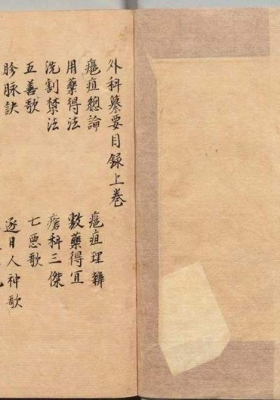 外科纂要目錄上卷
癰疽總論 癰疽理辨
用藥得法 敷藥得宜
洗割禁法 瘡科三傑
五善歌 七惡歌
診脉訣 逐日人神歌